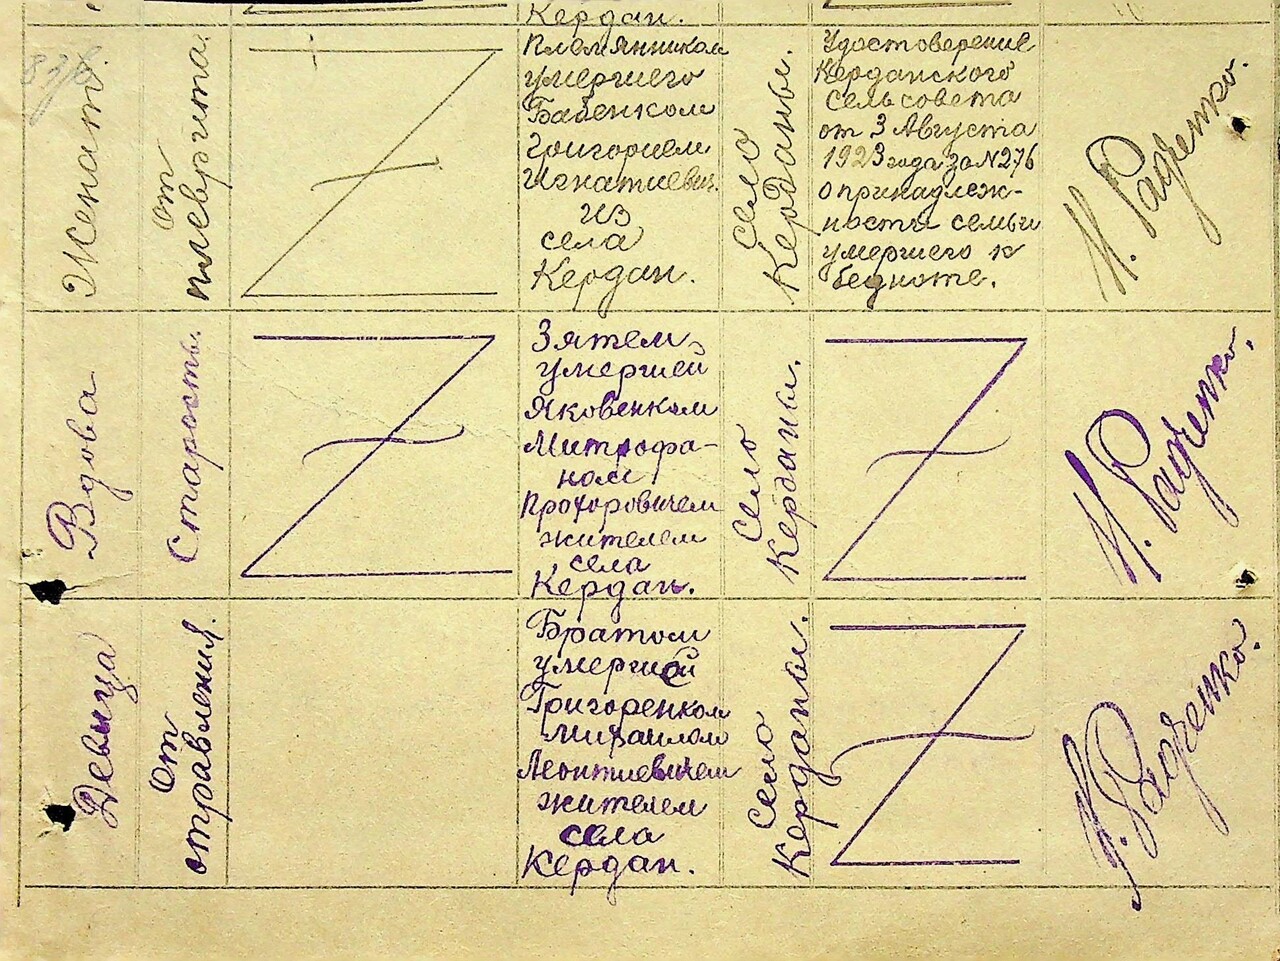 Кердан.
Женат.
От
плевригита.
Племянником
умершего
Бабенком
Григорием
Игнатиевич.
из
села
Кердан.
Село
Керданы.
Удостоверение
Керданского
сельсовета
от 3 Августа
1923 года за N 276
о принадлеж-
ности семьи
умершего к
бедноте.
И. Радченко.
Вдова
Старость.
Зятем
умершей
Яковенком
Митрофа-
ном
Прохоровичем
жителем
села
Кердан.
Село
Керданы.
И. Радченко.
Девица
От
отравления.
Братом
умершей
Григоренком
Михаилом
Леонтиевичем
жителем
села
Кердан.
Село
Керданы.
И. Радченко.